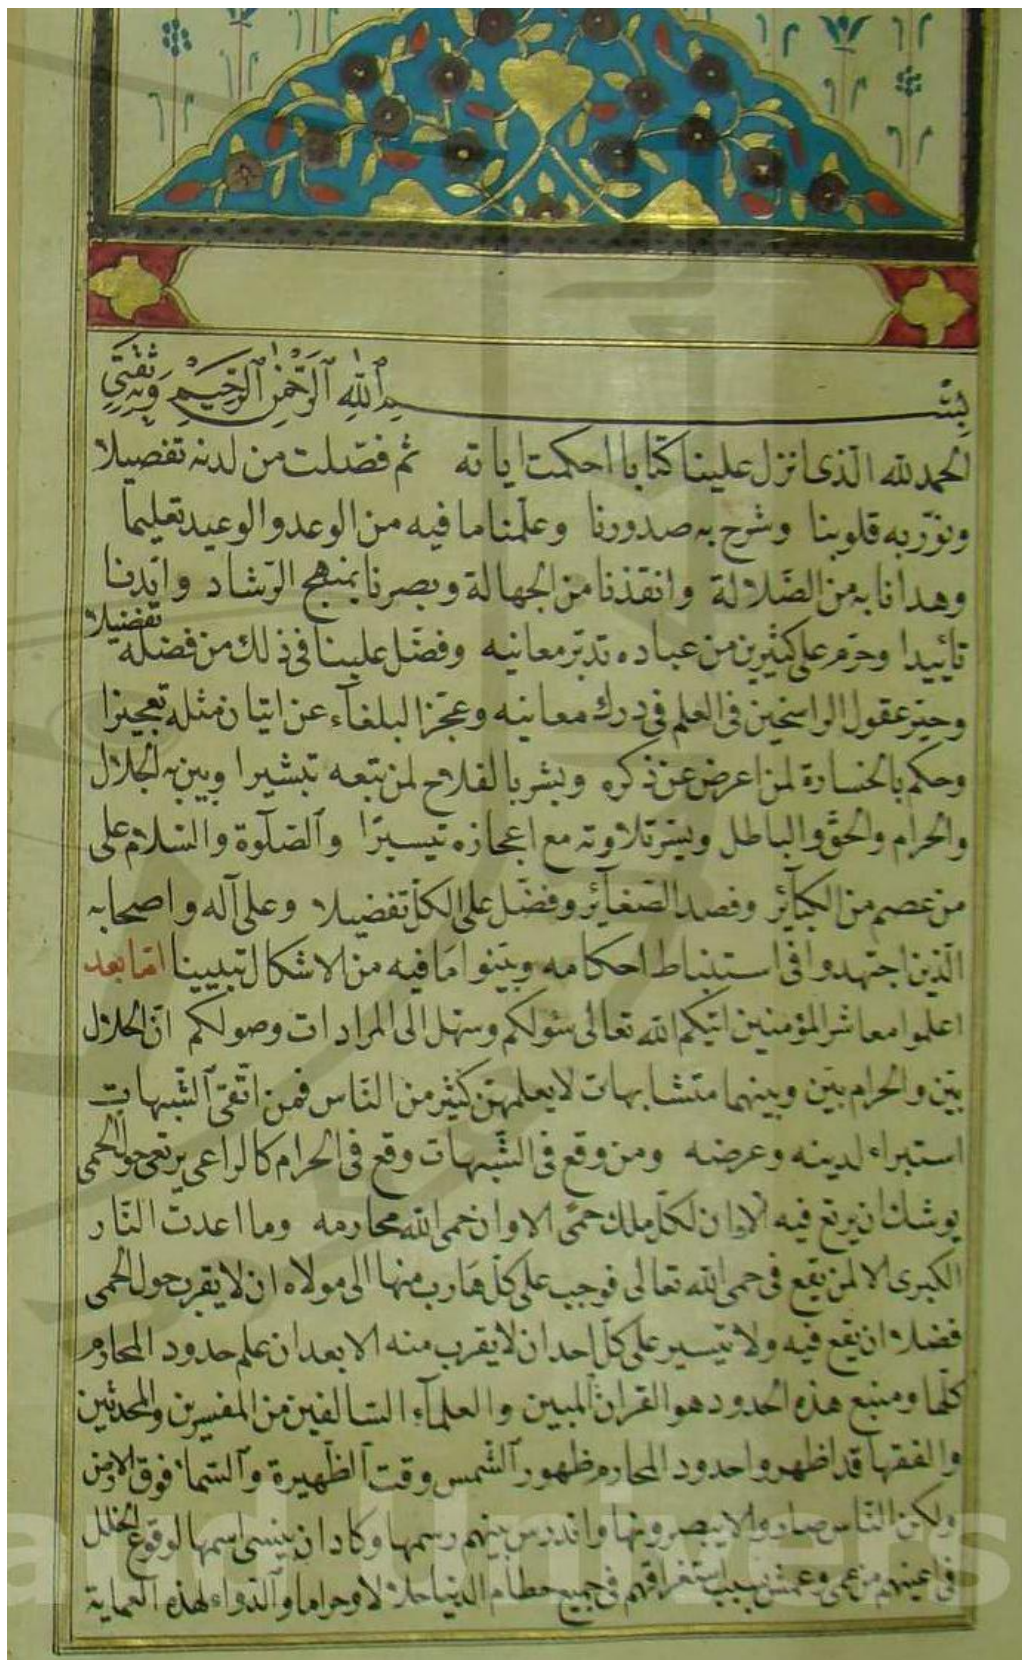 بسم الله الرحمن الرحيم وبه ثقتي
الحمد لله الذي انزل علينا كتابا احكمت اياته ثم فصلت من لدنه تفصيلا
ونور به قلوبنا وشرح به صدورنا وعلمنا ما فيه من الوعد والوعيد تعليما
وهدانا به من الضلالة وانقذنا من الجهالة وبصرنا بمنهج الرشاد وايدنا
تائيدا وحرم على كثيرين من عباده تدبر معانيه وفضل علينا في ذلك من فضله تفضيلا
وحير عقول الراسخين في العلم في درك معانيه وعجز البلغاء عن ايتان مثله تعجيزا
وحكم بالخسارة لمن اعرض عن ذكره وبشر بالفلاح لمن تبعه تبشيرا وبين به الحلال
والحرام والحق والباطل ويسر تلاوته مع اعجازه تيسيرا والصلوة والسلام على
من عصم من الكبائر وفصد الصغائر وفضل على الكل تفضيلا وعلى آله واصحابه
الذين اجتهدوا في استنباط احكامه وبينوا ما فيه من الاشكال تبيينا اما بعد
اعلموا معاشر المؤمنين اتيكم الله تعالى سئولكم وسهل الى المرادات وصولكم ان الحلال
بين والحرام بين وبينهما متشابهات لا يعلمهن كثير من الناس فمن اتقى الشبهات
استبراء لدينه وعرضه ومن وقع في الشبهات وقع في الحرام كالراعي يرتعي حول الحمى
يوشك ان يرتع فيه الا وان لكل ملك حمى الا وان حمى الله محارمه وما اعدت النار
الكبرى الا لمن يقع في حمى الله تعالى فوجب على كل هارب منها الى مولاه ان لا يقرب حول الحمى
فضلا ان يقع فيه ولا تيسير على كل احد ان لا يقرب منه الا بعد ان علم حدود المحارم
كلها ومنبع هذه الحدود هو القران المبين والعلماء السالفين من المفسرين والمحدثين
والفقها قد اظهروا حدود المحارم ظهور الشمس وقت الظهيرة والسماء فوق الارض
ولكن الناس صاروا لا يبصرونها واندرس بينهم رسمها وكاد ان ينسى اسمها لوقوع الخلل
في اعينهم من عمى وعمش بسبب استغراقهم في جميع حطام الدنيا حلالا وحراما والدواء لهذه العماية